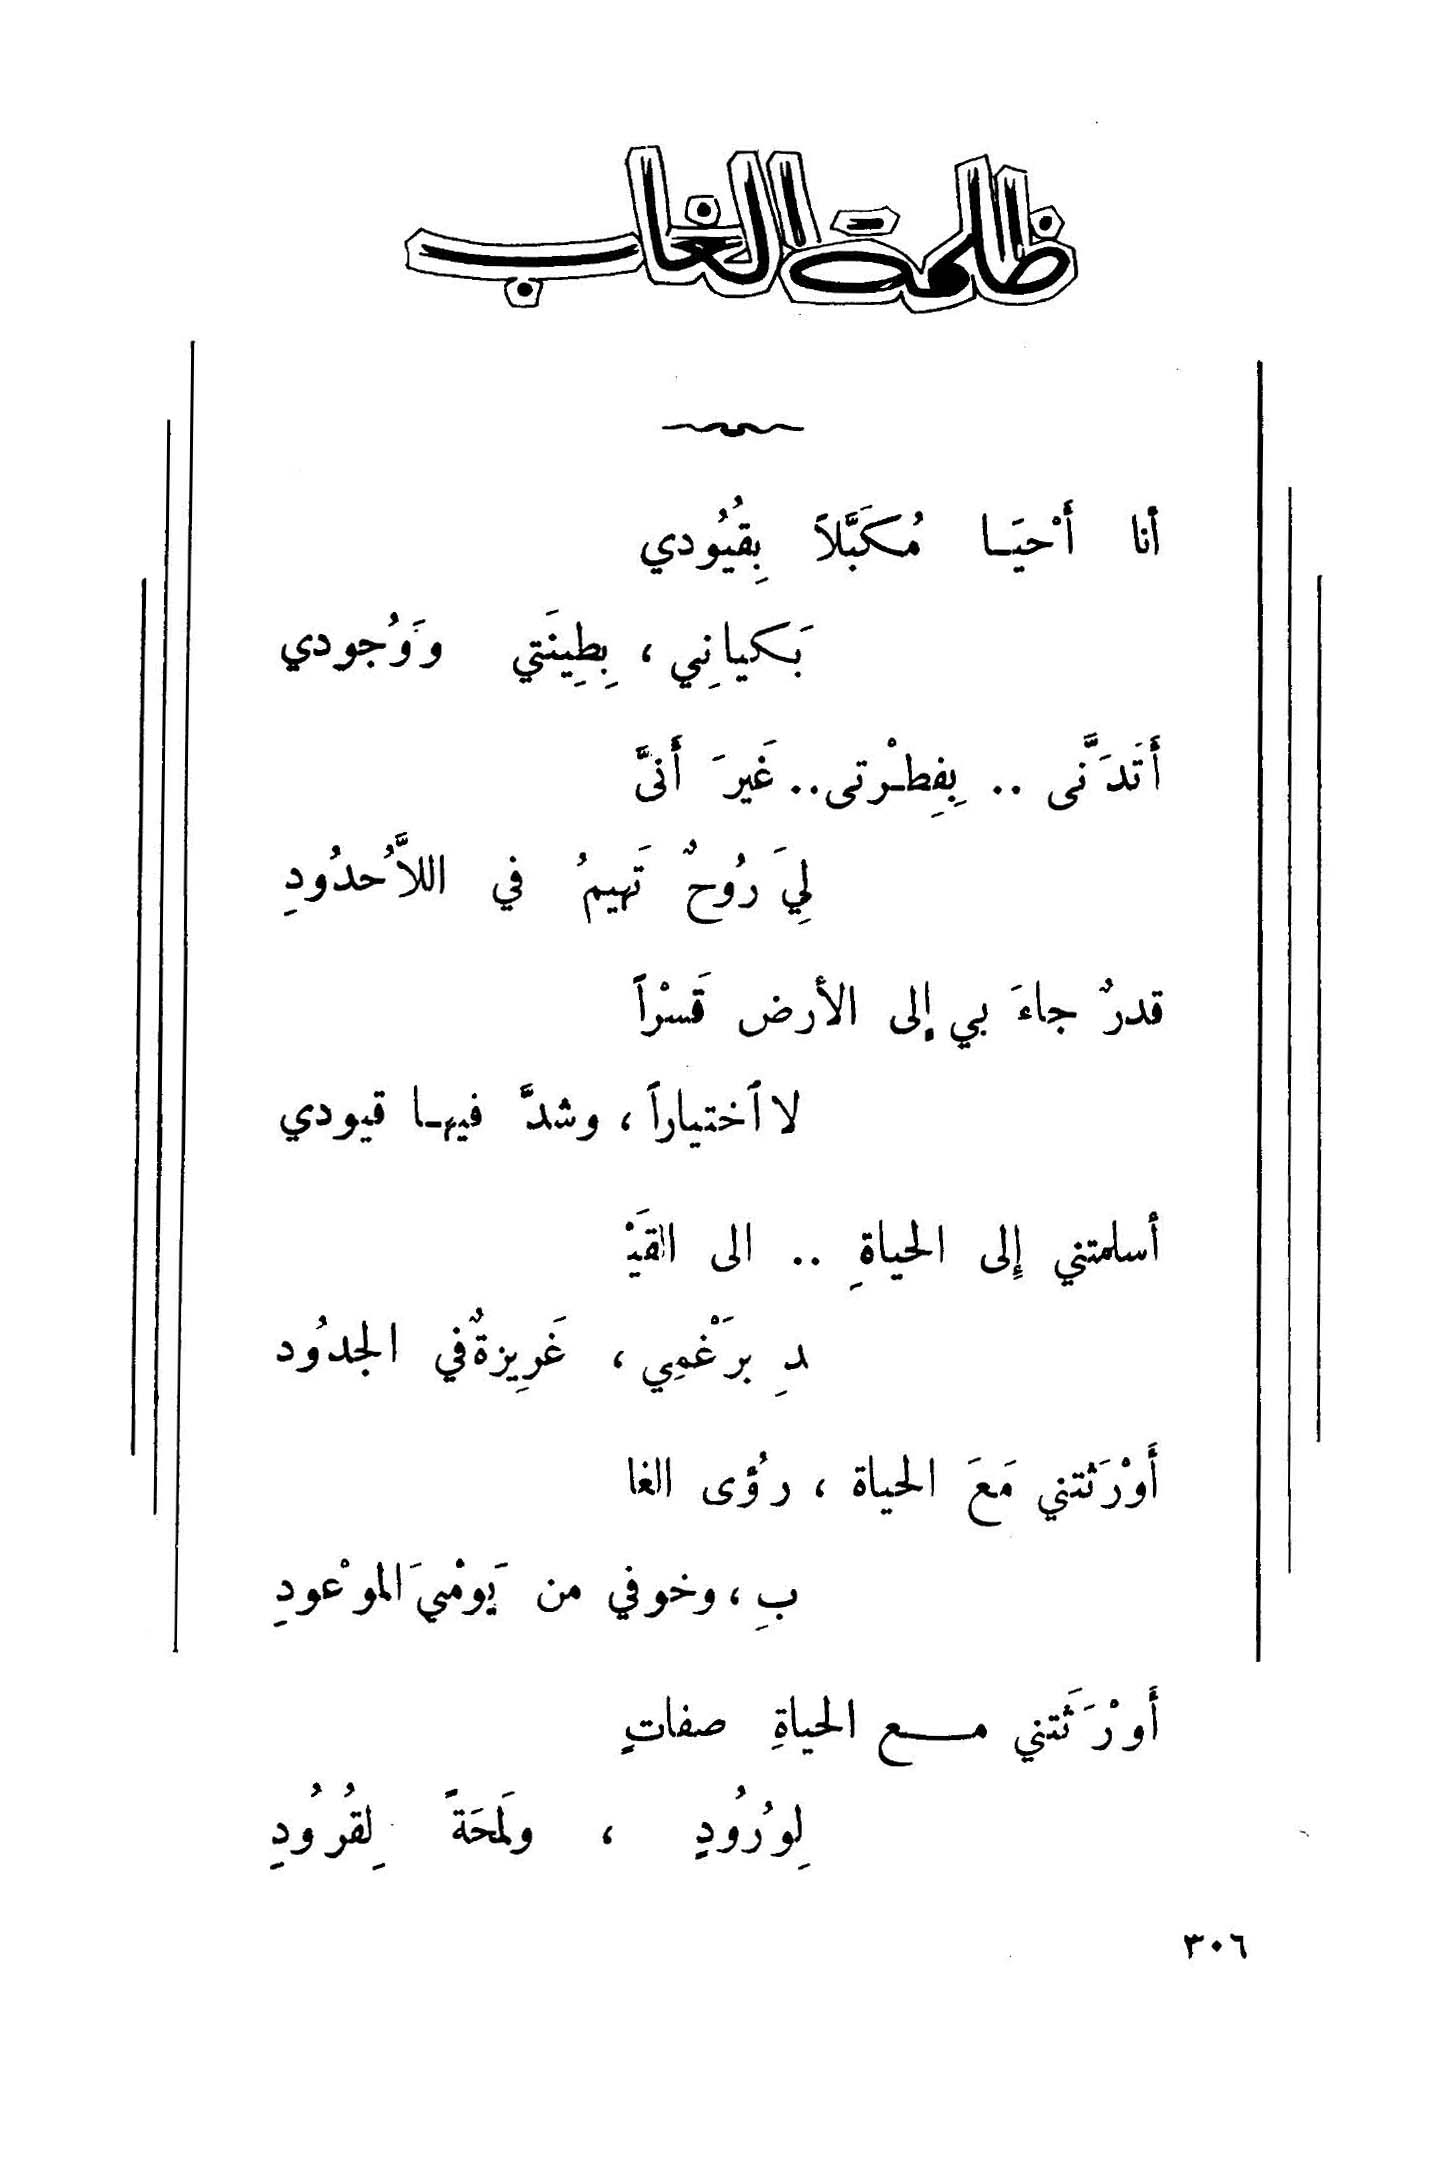 ظلمة الغاب
أنا أَحْيَــا مُكَبَّلاً بِقُيُودي
بَكيانِي ، بِطِينَتي وَوُجودي
أَتَدَنَّى .. بِفِطْـرتى .. غَيرَ أَنَّى
لِيَ رُوحٌ تَهيمُ في اللاَّحُدُودِ
قدرٌ جاءَ بي إِلى الأرض قَسْراً
لا اختياراً ، وشدَّ فيهـا قيودي
أسلمتني إِلى الحياةِ .. الى القَيْـ
ـدِ برَغْمِي ، غَرِيزةٌ في الجدُود
أَوْرَثتني مَعَ الحياة ، رُؤى الغا
بِ ، وخوفي من يَومْيَ الموْعودِ
أَورْثَتني مــــع الحياةِ صفاتٍ
لِوُرُودٍ ، ولَمحَةً لِقُرُودِ
٣٠٦